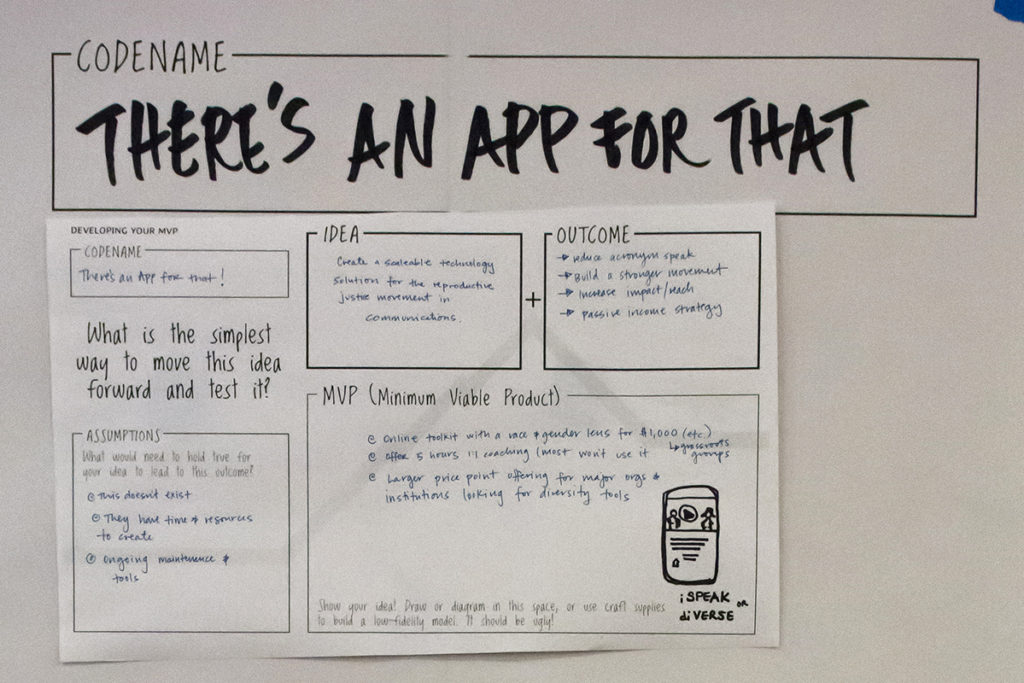 CODENAME
THERE'S AN APP FOR THAT
DEVELOPING YOUR MVP
CODENAME
There's an App for that!
What is the simplest
way to move this idea
forward and test it?
ASSUMPTIONS
What would need to hold true for
your idea to lead to this outcome?
this doesn't exist
They have time & resources
to create
ongoing maintenence &
tools
IDEA
Create a scaleable technology
solution for the reproductive
justice movement in
communications.
+
OUTCOME
→ reduce acronym speak
→ Build a stronger movement
→ Increase impact/reach
→ passive income strategy
MVP (Minimum Viable Product)
online toolkit with a race & gender lens for $1,000 (etc)
↳ grassroots
groups
offer 5 hours 1:1 coaching (most won't use it
Larger price point offering for major orgs &
institutions looking for diversity tools
iSPEAK
OR
diVERSE
Show your idea! Draw or diagram in this space, or use craft supplies
to build a low-fidelity model. It should be ugly!